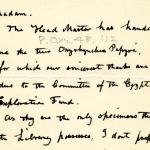 Madam.
The Head Master has handed
P.Oxy. 48. 112
me the two Oxyrhynchus Papyri
for which our sincerest thanks are
due to the Committee of the Egypt
Exploration Fund.
As they are the only specimens th
the Library possesses, I don't prop